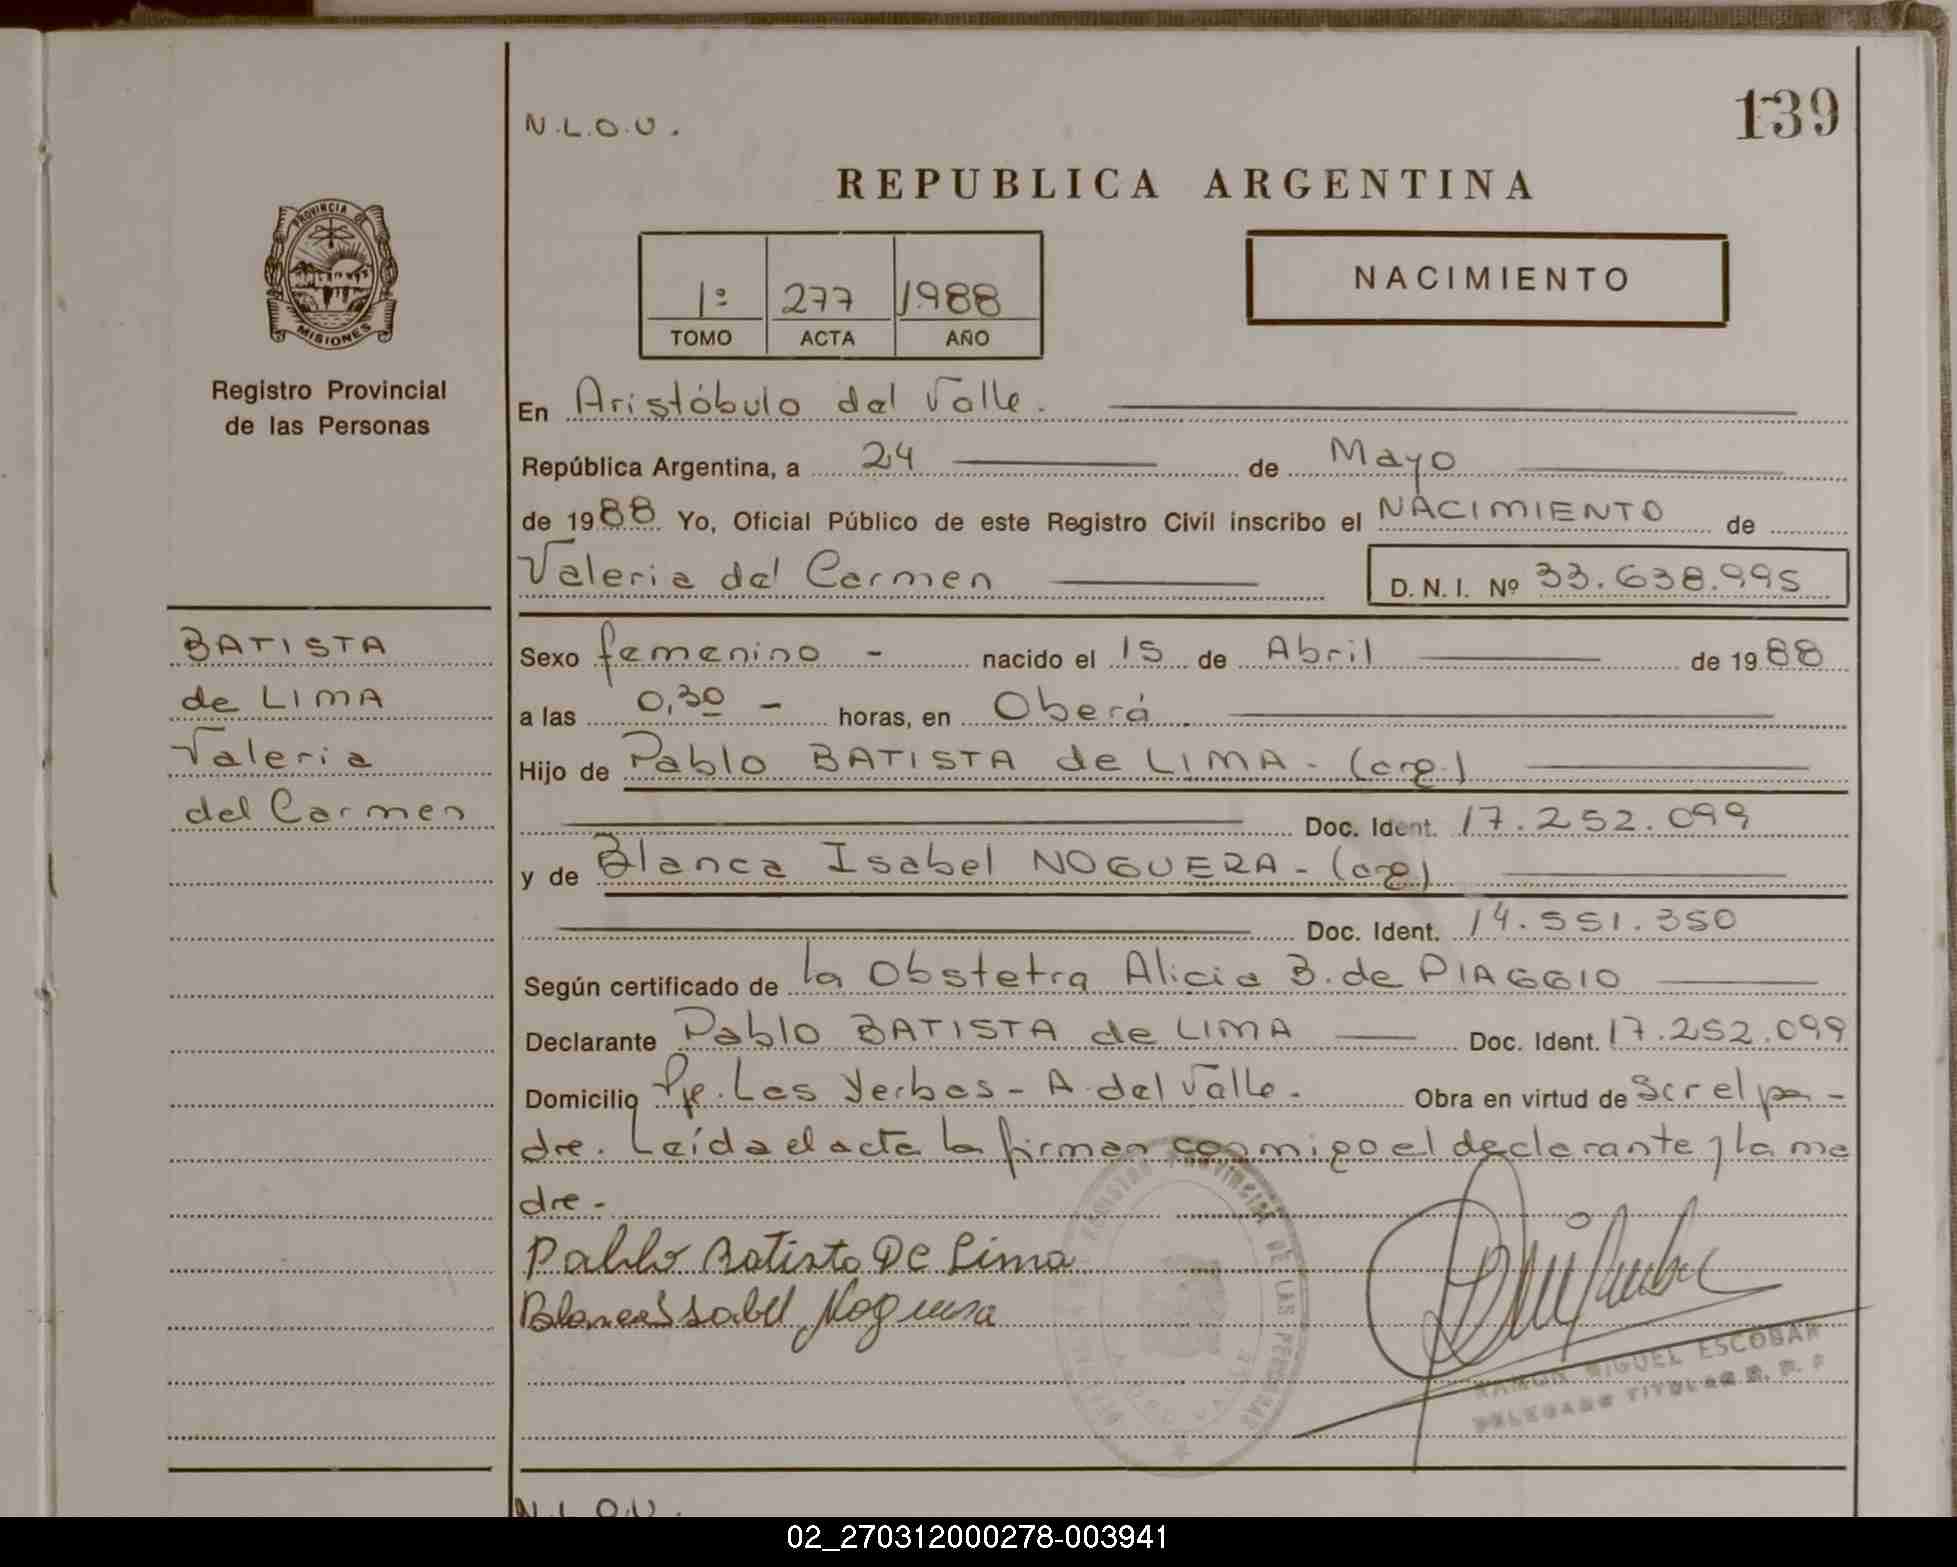 N.L.O.U.
139
REPUBLICA ARGENTINA
PROVINCIA DE
MISIONES
Registro Provincial
de las Personas
1º 277 1988
TOMO ACTA AÑO
NACIMIENTO
En Aristóbulo del Valle.
República Argentina, a 24 de Mayo
de 1988 Yo, Oficial Público de este Registro Civil inscribo el NACIMIENTO de
Valeria del Carmen D. N. I. Nº 33.638.995
BATISTA
de LIMA
Valeria
del Carmen
Sexo femenino - nacido el 15 de Abril de 1988
a las 0,30 - horas, en Oberá
Hijo de Pablo BATISTA de LIMA - (arg.)
Doc. Ident. 17.252.099
y de Blanca Isabel NOGUERA - (arg)
Doc. Ident. 14.551.350
Según certificado de la Obstetra Alicia B. de PIAGGIO
Declarante Pablo BATISTA de LIMA Doc. Ident. 17.252.099
Domicilio Pje. Las Yerbas - A. del Valle. Obra en virtud de Ser el pa-
dre. Leída el acta la firman conmigo el declarante y la ma
dre -
Pablo Batista De Lima
Blanca Issabel Noguera
PROVINCIAL DE LAS PERSONAS
RAMON MIGUEL ESCOBAR
DELEGADO TITULAR R. P. P
N.L.O.U.
02_270312000278-003941